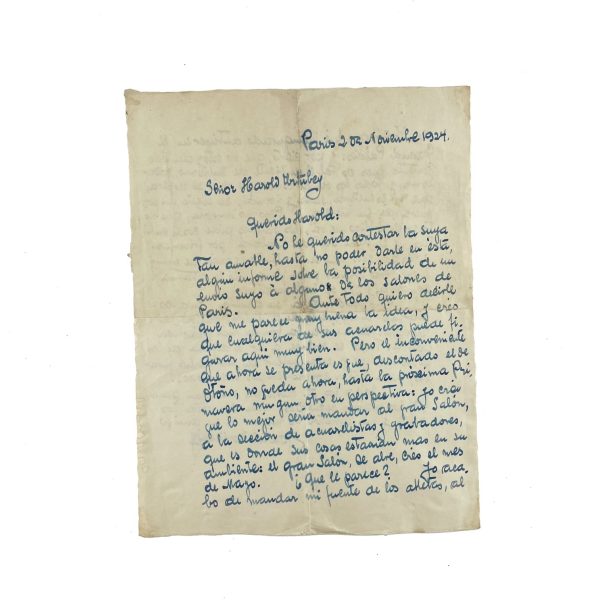 Paris 2 de Noviembre 1924.
Señor Harold Urtubey
Querido Harold:
No he querido contestar la suya
tan amable, hasta no poder darle en ésta,
algún informe sobre la posibilidad de un
envio suyo à alguno de los salones de
Paris. Ante todo quiero decirle
que me parece muy buena la idea, y creo
que cualquiera de sus acuarelas puede fi.
gurar aqui muy bien. Pero el inconveniente
que ahora se presenta es que, descontado el de
Otoño, no queda ahora, hasta la próxima Pri
mavera ningun otro en perspectiva: yo creo
que lo mejor seria mandar al gran Salón,
a la sección de acuarelistas y grabadores,
que es donde sus cosas estarian mas en su
ambiente: el gran Salón, se abre, creo el mes
de Mayo. ¿Que le parece? Yo aca
bo de mandar mi fuente de los atletas, al